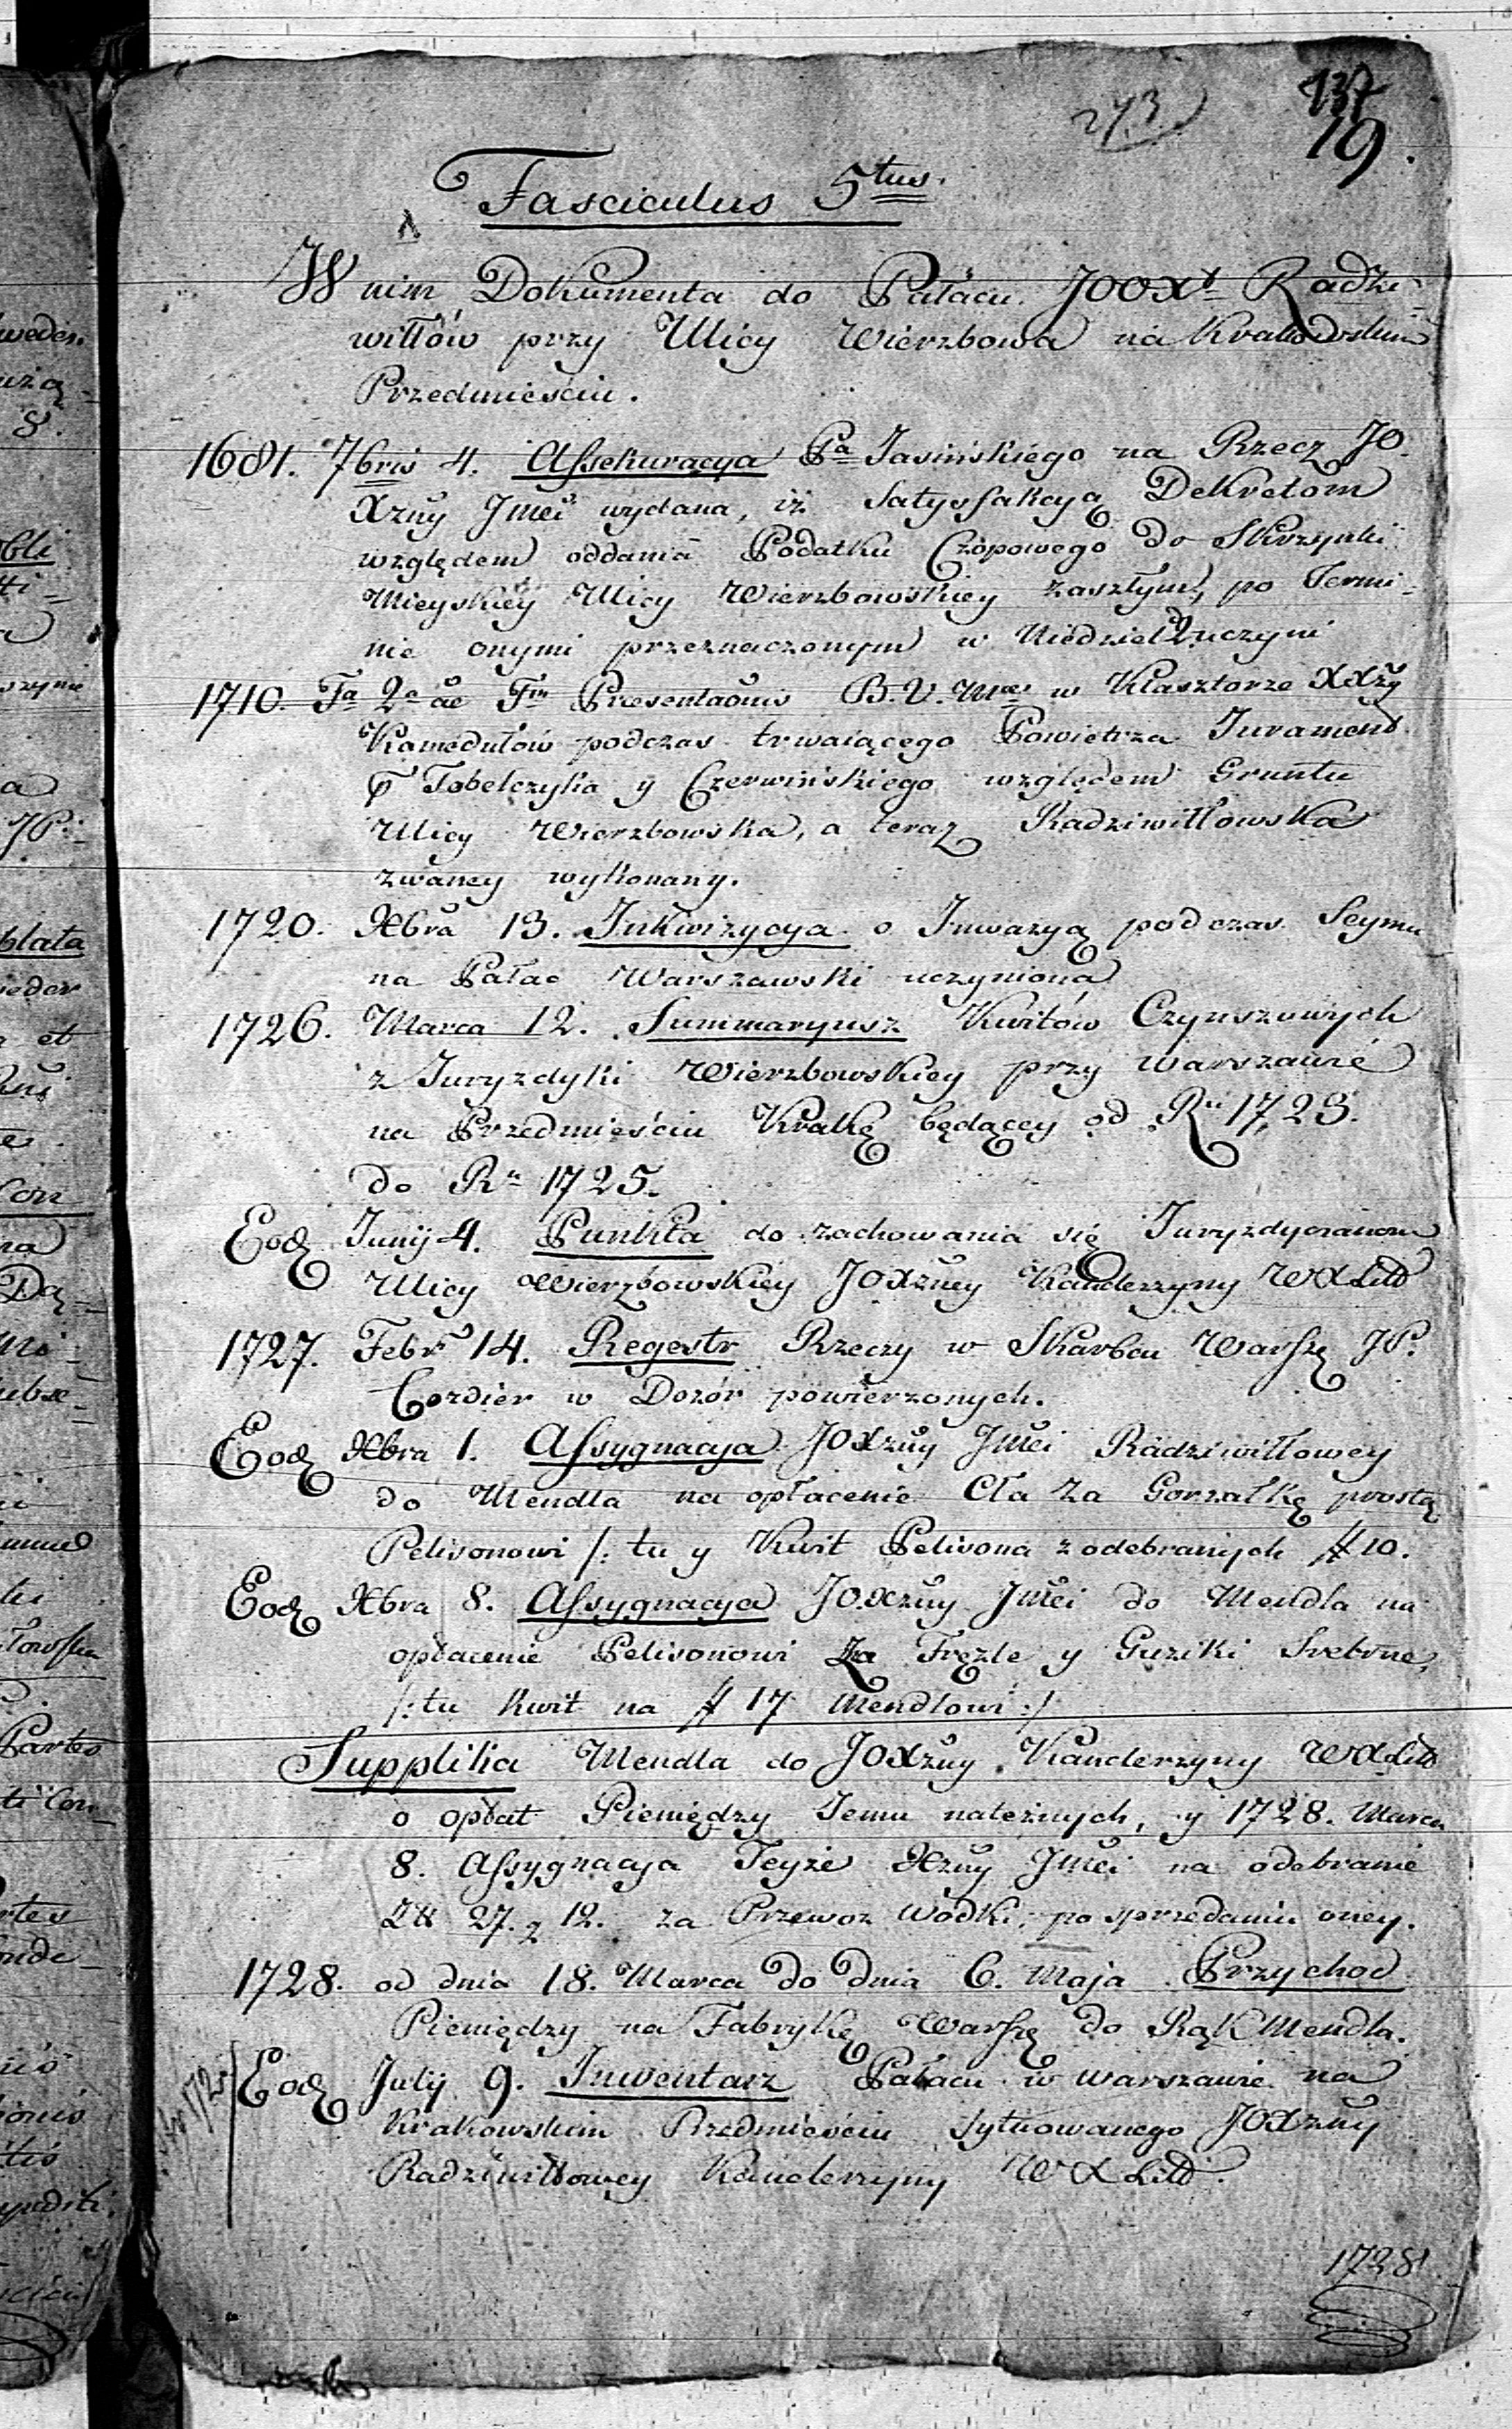 273
137
19.
Fasciculus 5tus.
W nim Dokumenta do Pałacu JOOXt Radzi-
wiłłów przy Ulicy Wierzbowa na Krakowskim
Przedmieściu.
1681. 7bris 4. Assekuracya Pa Jasińskiego na Rzecz JO.
Xzny Jmci wydana, iż Satysfakcyą Dekretom
względem oddania Podatku Czopowego do Skrzynki
Mieyskiey Ulicy Wierzbowskiey zaszłym, po Termi-
nie onymi przeznaczonym w Niedziel 2 uczyni
1710. Fa 2a Præsentaõnis B. V. Mæ w Klasztorze XX
Kamedułów podczas trwaiącego Powietrza Jurament
Tobelczyka y Czerwińskiego względem Gruntu
Ulicy Wierzbowska, a teraz Radziwiłłowska
zwaney wykonany.
1720. Xbra 13. Inkwizycya o Inwazyą podczas Seymu
na Pałac Warszawski uczynioną
1726. Marca 12. Summaryusz Kwitów Czynszowych
z Juryzdyki Wierzbowskiey przy Warszawie
na Przedmieściu Krakę będącey od Ru 1723.
do Ru 1725.
Eod Junij 4. Punkta do zachowania się Juryzdyczanom
Ulicy Wierzbowskiey JOXzney Kanclerzyny WXLitt
1727. Febr 14. Regestr Rzeczy w Skarbcu Warszę JP.
Cordier w Dozór powierzonych.
Eod Xbra 1. Assygnacya JOXzny Jmci Radziwiłłowey
do Mendla na opłacenie Cła za Gorzałkę prostą
Pelisonowi /: tu y Kwit Pelisona z odebranych # 10.
Eod Xbra 8. Assygnacya JOXzny Jmci do Mendla na
opłacenie Pelisonowi Za Fręzle y Guziki Srebrne,
/: tu kwit na # 17 Mendlowi :/
Supplika Mendla do JOXzny Kanclerzyny WXLitt
o opłat Pieniędzy Jemu należnych, y 1728. Marca
8. Assygnacya Teyże Xzny Jmci na odebranie
27. 12. za Przewoz Wodki, po sprzedaniu oney.
1728. od dnia 18. Marca do dnia 6. Maja Przychod
Pieniędzy na Fabrykę Warszę do Rąk Mendla.
Eod July 9. Inwentarz Pałacu w Warszawie na
Krakowskim Przedmieściu sytuowanego JOXzny
Radziwiłłowey Kanclerzyny WXLitt.
1728